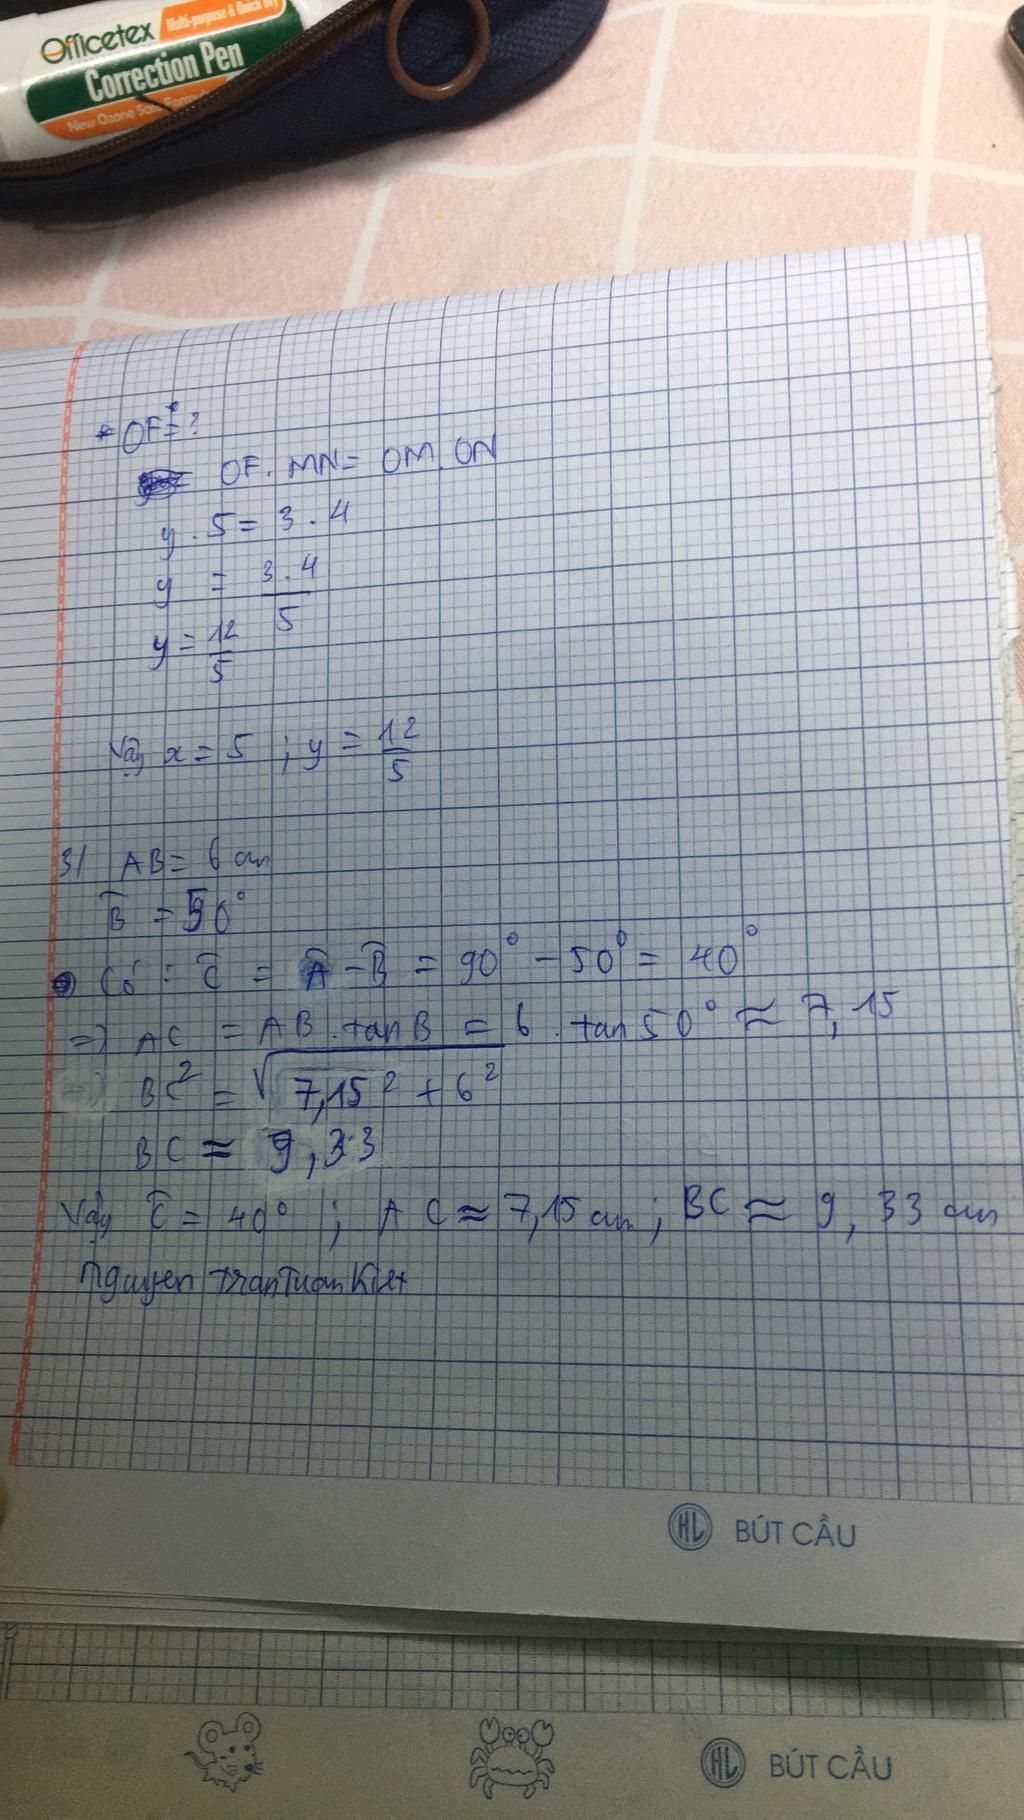 Officetex
Multi-purpose & Quick Dry
Correction Pen
New Ozone Safe Formula
* OF = ?
OF. MN = OM. ON
y . 5 = 3 . 4
y = 3 . 4 / 5
y = 12 / 5
Vậy x = 5 ; y = 12 / 5
3/ AB = 6 cm
B̂ = 50°
Có : Ĉ = Â - B̂ = 90° - 50° = 40°
=> AC = AB . tan B = 6 . tan 50° ≈ 7,15
BC² = √7,15² + 6²
BC ≈ 9,33
Vậy Ĉ = 40° ; AC ≈ 7,15 cm ; BC ≈ 9,33 cm
Nguyen Tran Tuan Kiet
HL BÚT CẦU
HL BÚT CẦU